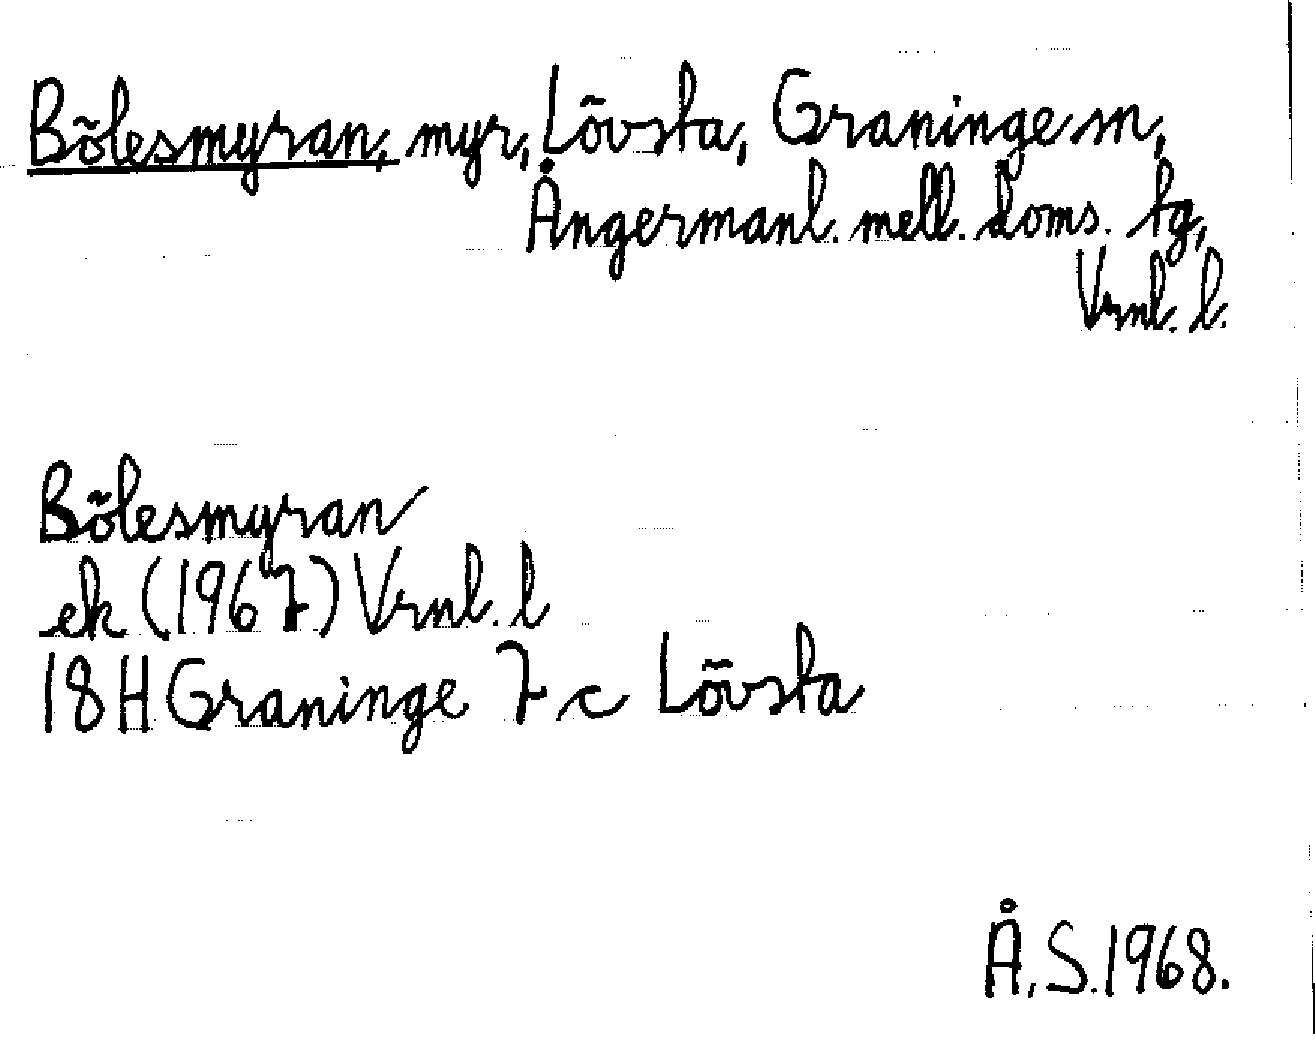 Bölesmyran, myr, Lövsta, Graninge sn,
Ångermanl. mell. doms. tg,
Vrnl. l.
Bölesmyran
ek (1967) Vrnl. l
18H Graninge 7 c Lövsta
Å, S. 1968.